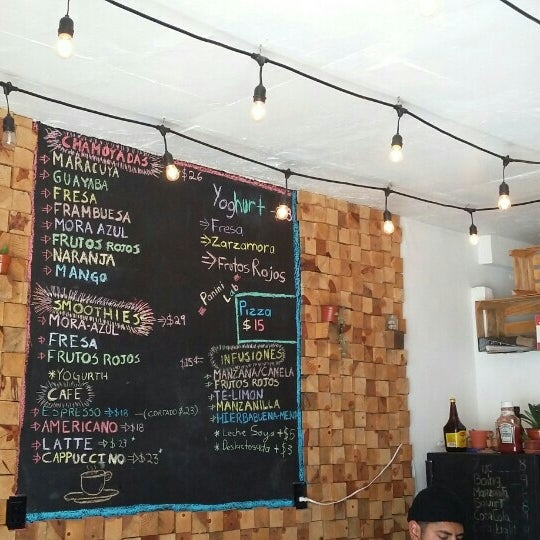 CHAMOYADAS $26
→MARACUYA
→GUAYABA
→FRESA
→FRAMBUESA
→MORA AZUL
→FRUTOS ROJOS
→NARANJA
→MANGO
SMOOTHIES →$29
→MORA-AZUL
→FRESA
→FRUTOS ROJOS
*YOGURTH
CAFÉ
→ESPRESSO→$18 —(CORTADO $23)
→AMERICANO→$18
→LATTE →$23*
→CAPPUCCINO→$23*
Yoghurt
→Fresa
→Zarzamora
→Frutos Rojos
Panini Lab
Pizza
$15
$15← INFUSIONES
→MANZANA/CANELA
→FRUTOS ROJOS
→TE-LIMON
→MANZANILLA
→HIERBABUENA-MENTA
*Leche Soya +$5
*Deslactosada +$3
8
Boing
Manzanita
CocaCola